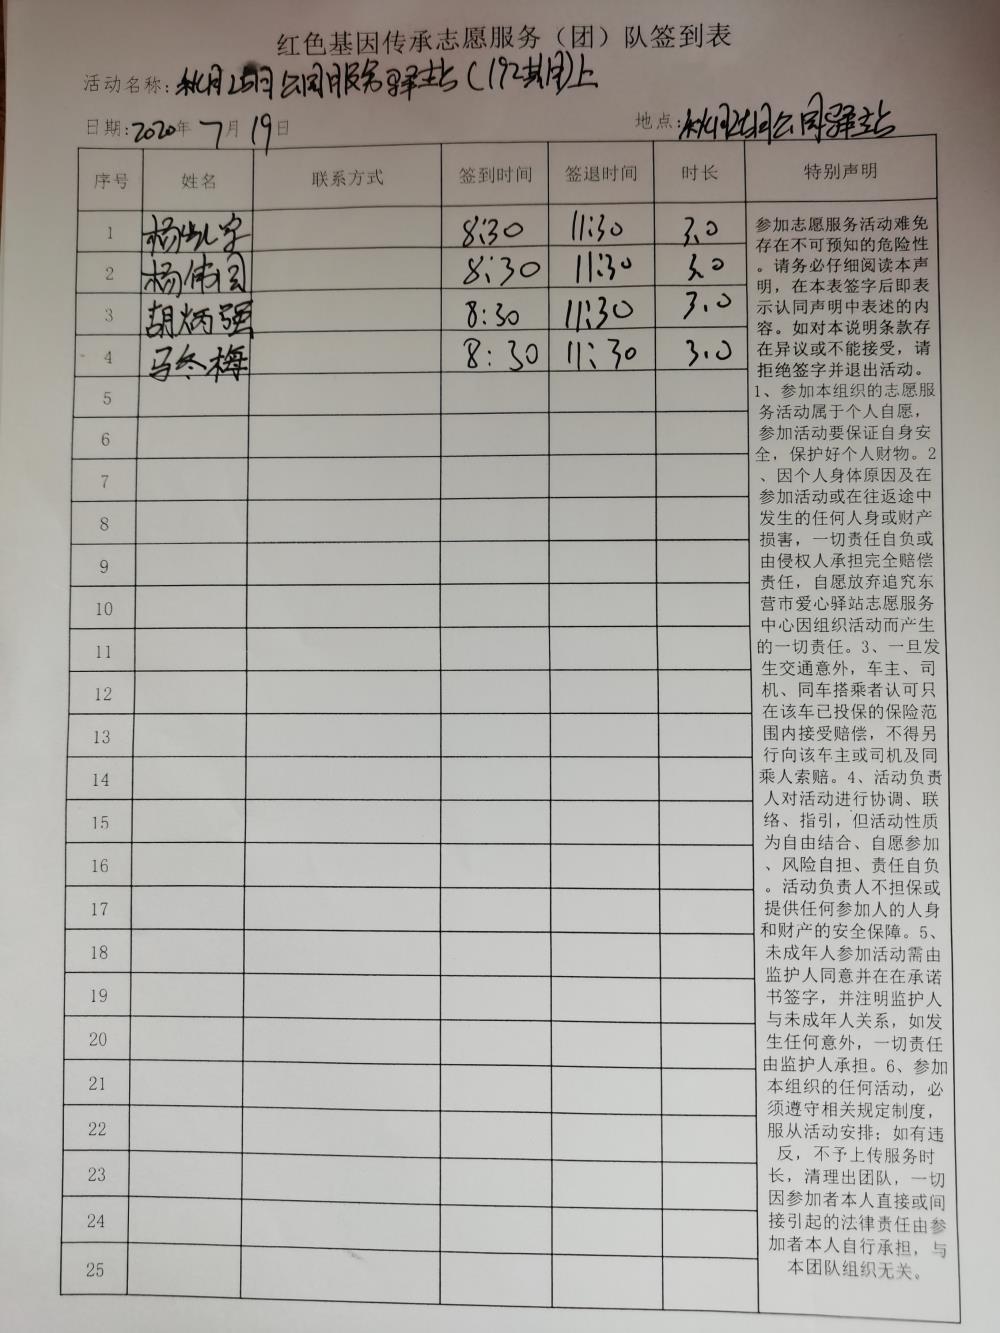 红色基因传承志愿服务（团）队签到表
活动名称：秋月 公园服务驿站（192期）上
日期：2020年7月19日 地点： 公园驿站
序号 姓名 联系方式 签到时间 签退时间 时长 特别声明
1 杨凯宇 8:30 11:30 3.0
2 杨伟同 8:30 11:30 3.0
3 胡炳强 8:30 11:30 3.0
4 马冬梅 8:30 11:30 3.0
5
6
7
8
9
10
11
12
13
14
15
16
17
18
19
20
21
22
23
24
25
参加志愿服务活动难免
存在不可预知的危险性
。请务必仔细阅读本声
明，在本表签字后即表
示认同声明中表述的内
容。如对本说明条款存
在异议或不能接受，请
拒绝签字并退出活动。
1、参加本组织的志愿服
务活动属于个人自愿，
参加活动要保证自身安
全，保护好个人财物。2
、因个人身体原因及在
参加活动或在往返途中
发生的任何人身或财产
损害，一切责任自负或
由侵权人承担完全赔偿
责任，自愿放弃追究东
营市爱心驿站志愿服务
中心因组织活动而产生
的一切责任。3、一旦发
生交通意外，车主、司
机、同车搭乘者认可只
在该车已投保的保险范
围内接受赔偿，不得另
行向该车主或司机及同
乘人索赔。4、活动负责
人对活动进行协调、联
络、指引，但活动性质
为自由结合、自愿参加
、风险自担、责任自负
。活动负责人不担保或
提供任何参加人的人身
和财产的安全保障。5、
未成年人参加活动需由
监护人同意并在在承诺
书签字，并注明监护人
与未成年人关系，如发
生任何意外，一切责任
由监护人承担。6、参加
本组织的任何活动，必
须遵守相关规定制度，
服从活动安排；如有违
反，不予上传服务时
长，清理出团队，一切
因参加者本人直接或间
接引起的法律责任由参
加者本人自行承担，与
本团队组织无关。